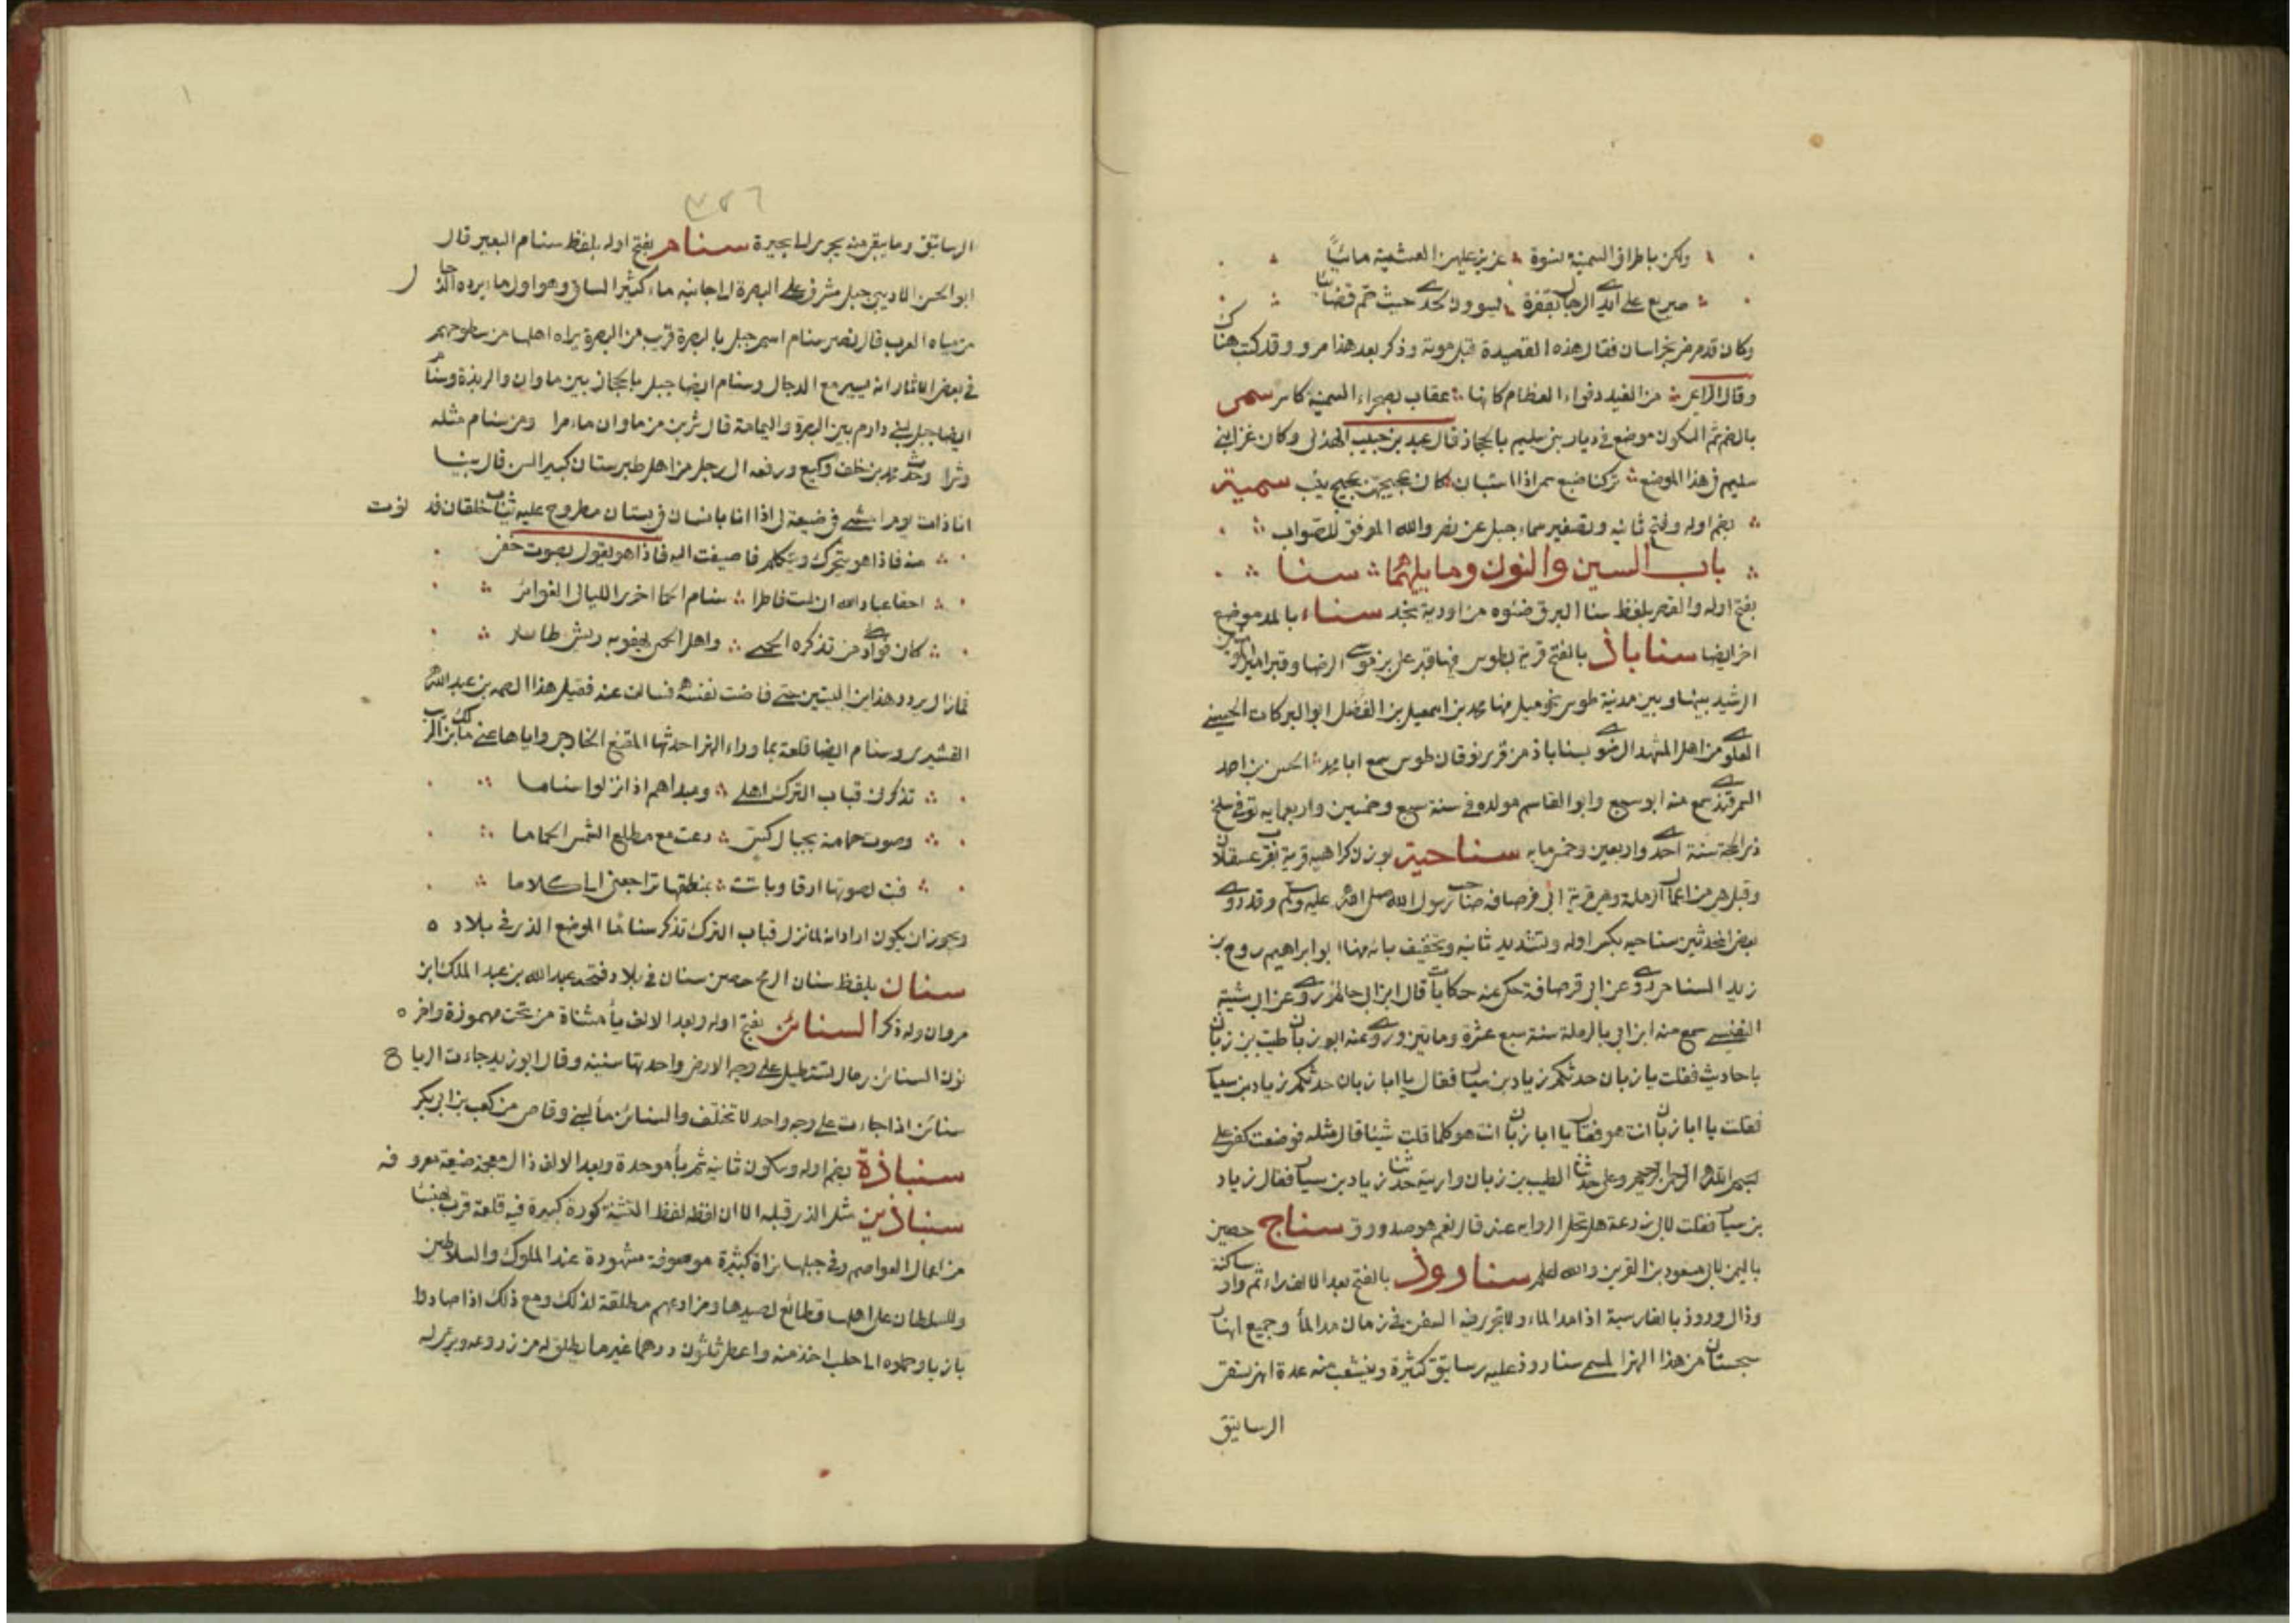 ولكن باطراف السمينة نسوة عزيز عليهن العشية مابيا
صريع على ايدي الرجال بقفرة يسوون لحدي حيث حم قضائيا
وكان قد مرض بخراسان فقال هذه القصيدة قبل موته وذكر بعد هذا مرو وقد كتبت هناك
وقال الراعي من الغيد دفواء العظام كانها عقاب بصحراء السمينة كاسر سمى
بالضم ثم السكون موضع في ديار بني سليم بالحجاز قال عبد بن حبيب الهذلي وكان غزا بني
سليم في هذا الموضع تركنا ضبع سمى اذا استبانت كان عجيجهن عجيج نيب سمية
بضم اوله وفتح ثانيه وتصغير سماء جبل عن نصر والله الموفق للصواب
باب السين والنون وما يليهما سنا
بفتح اوله والقصر بلفظ سنا البرق ضوءه من اودية نجد سناء بالمد موضع
اخر ايضا سناباذ بالفتح قرية بطوس فيها قبر علي بن موسى الرضا وقبر امير المومنين
الرشيد بينها وبين مدينة طوس نحو ميل منها محمد بن اسمعيل بن الفضل ابو البركات الحسيني
العلوي من اهل المشهد الرضوي بسناباذ من قرى نوقان طوس سمع ابا محمد الحسن بن احمد
السمرقندي سمع منه ابو سعد وابو القاسم مولده في سنة سبع وخمسين واربعمايه توفي سلخ
ذي الحجة سنة احدى واربعين وخمسمايه سناجية بوزن كراهية قرية بقرب عسقلان
وقيل هي من اعمال الرملة وهي قرية ابي قرصافه صاحب رسول الله صلى الله عليه وسلم وقد روى
بعض المحدثين سناجيه بكسر اوله وتشديد ثانيه وتخفيف يائه منها ابو ابراهيم روح بن
زيد السناجي روى عن ابي قرصافة حكى عنه حكايات قال ابن ابي حاتم روى عن ابي شيبة
النفيسي سمع منه ابي بالرملة سنة سبع عشرة وماتين وروى عنه ابو زبان طيب بن زبان
باحاديث فقلت يا زبان حدثكم زياد بن سيار فقال يا ابا زبان حدثكم زياد بن سيار
فقلت يا ابا زبان انت هو فقال يا ابا زبان انت هو كلما قلت شيئا قال مثله فوضعت كفي على
بسم الله الرحمن الرحيم وعلى حدثنا الطيب بن زبان واريته حدثنا زياد بن سيار فقال زياد
بن سيار فقلت لابي زرعة هل تحل الروايه عنه قال نعم هو صدوق سناج حصن
باليمن لابي مسعود بن القرين والله اعلم سناروذ بالفتح بعد الالف راء ثم واو ساكنة
وذال وروذ بالفارسية اذا مد الماء ولا تجري فيه السفن في زمان مد الما وجميع انهار
سجستان من هذا النهر المسمى سناروذ عليه رساتيق كثيرة وينشعب منه عدة انهر تسقي
الرساتيق
٣٥٦
الرساتيق وما يبقى منه يجري الى بحيرة سنام بفتح اوله بلفظ سنام البعير قال
ابو الحسن الاديبي جبل مشرف على البصرة الى جانبه ماء كثير السافي وهو اول ماء يرده الدجال
من مياه العرب قال نصر سنام اسم جبل بالبصرة قريب من البصرة يراه اهلها من سطوحهم
في بعض الاثار انه يسير مع الدجال وسنام ايضا جبل بالحجاز بين ماوان والربذة وسنام
ايضا جبل لبني دارم بين البصرة واليمامة قال شربن من ماوان ماء مرا ومن سنام مثله
وشرا وحدث محمد بن خلف وكيع ورفعه الى رجل من اهل طبرستان كبير السن قال بينا
انا ذات يوم امشي في ضيعة لي اذا انا بانسان في بستان مطروح عليه ثياب خلقان فدنوت
منه فاذا هو يتحرك ويتكلم فاصغيت اليه فاذا هو يقول بصوت خفي
احقا عباد الله ان لست ناظرا سنام الحما اخرى الليالي الغوابر
كان فوادي من تذكره الحمى واهل الحمى يهفو به ريش طاير
فما زال يردد هذين البيتين حتى فاضت نفسه فسالت عنه فقيل هذا الصمة بن عبد الله
القشيري وسنام ايضا قلعة بما وراء النهر احدثها المقنع الخارجي واياها عنى مالك بن الريب
تذكرني قباب الترك اهلي ومبداهم اذا نزلوا سناما
وصوت حمامة بجبال كش دعت مع مطلع الشمس الحماما
فبت لصوتها ارقا وباتت بمنطقها تراجعني الكلاما
ويجوز ان يكون اراد انه لما نزل قباب الترك تذكر سناما الموضع الذي في بلاده
سنان بلفظ سنان الرمح حصن سنان في بلاد فتحه عبد الله بن عبد الملك ابن
مروان وله ذكر السنائن بفتح اوله وبعد الالف ياء مثناة من تحت مهموزة واخره
نون السنائن رمال تستطيل على وجه الارض واحدتها سنينه وقال ابو زيد جاءت الرياح
سنائن اذا جاءت على وجه واحد لا تختلف والسنائن ماء لبني وقاص من كعب بن ابي بكر
سنباذة بضم اوله وسكون ثانيه ثم باء موحدة وبعد الالف ذال معجمه ضيعة معروفه
سنباذين مثل الذي قبله الا ان لفظه لفظ التثنية كورة كبيرة فيه قلعة قرب بهسنا
من اعمال العواصم وفي جبلها بزاة كثيرة موصوفة مشهورة عند الملوك والسلاطين
وللسلطان على اهلها قطائع لصيدها ومزارعهم مطلقة لذلك ومع ذلك اذا صادوا
بازيا وحملوه الى حلب اخذ منه واعطي ثلثون درهما غير ما يطلق له من زروعه ويرى له